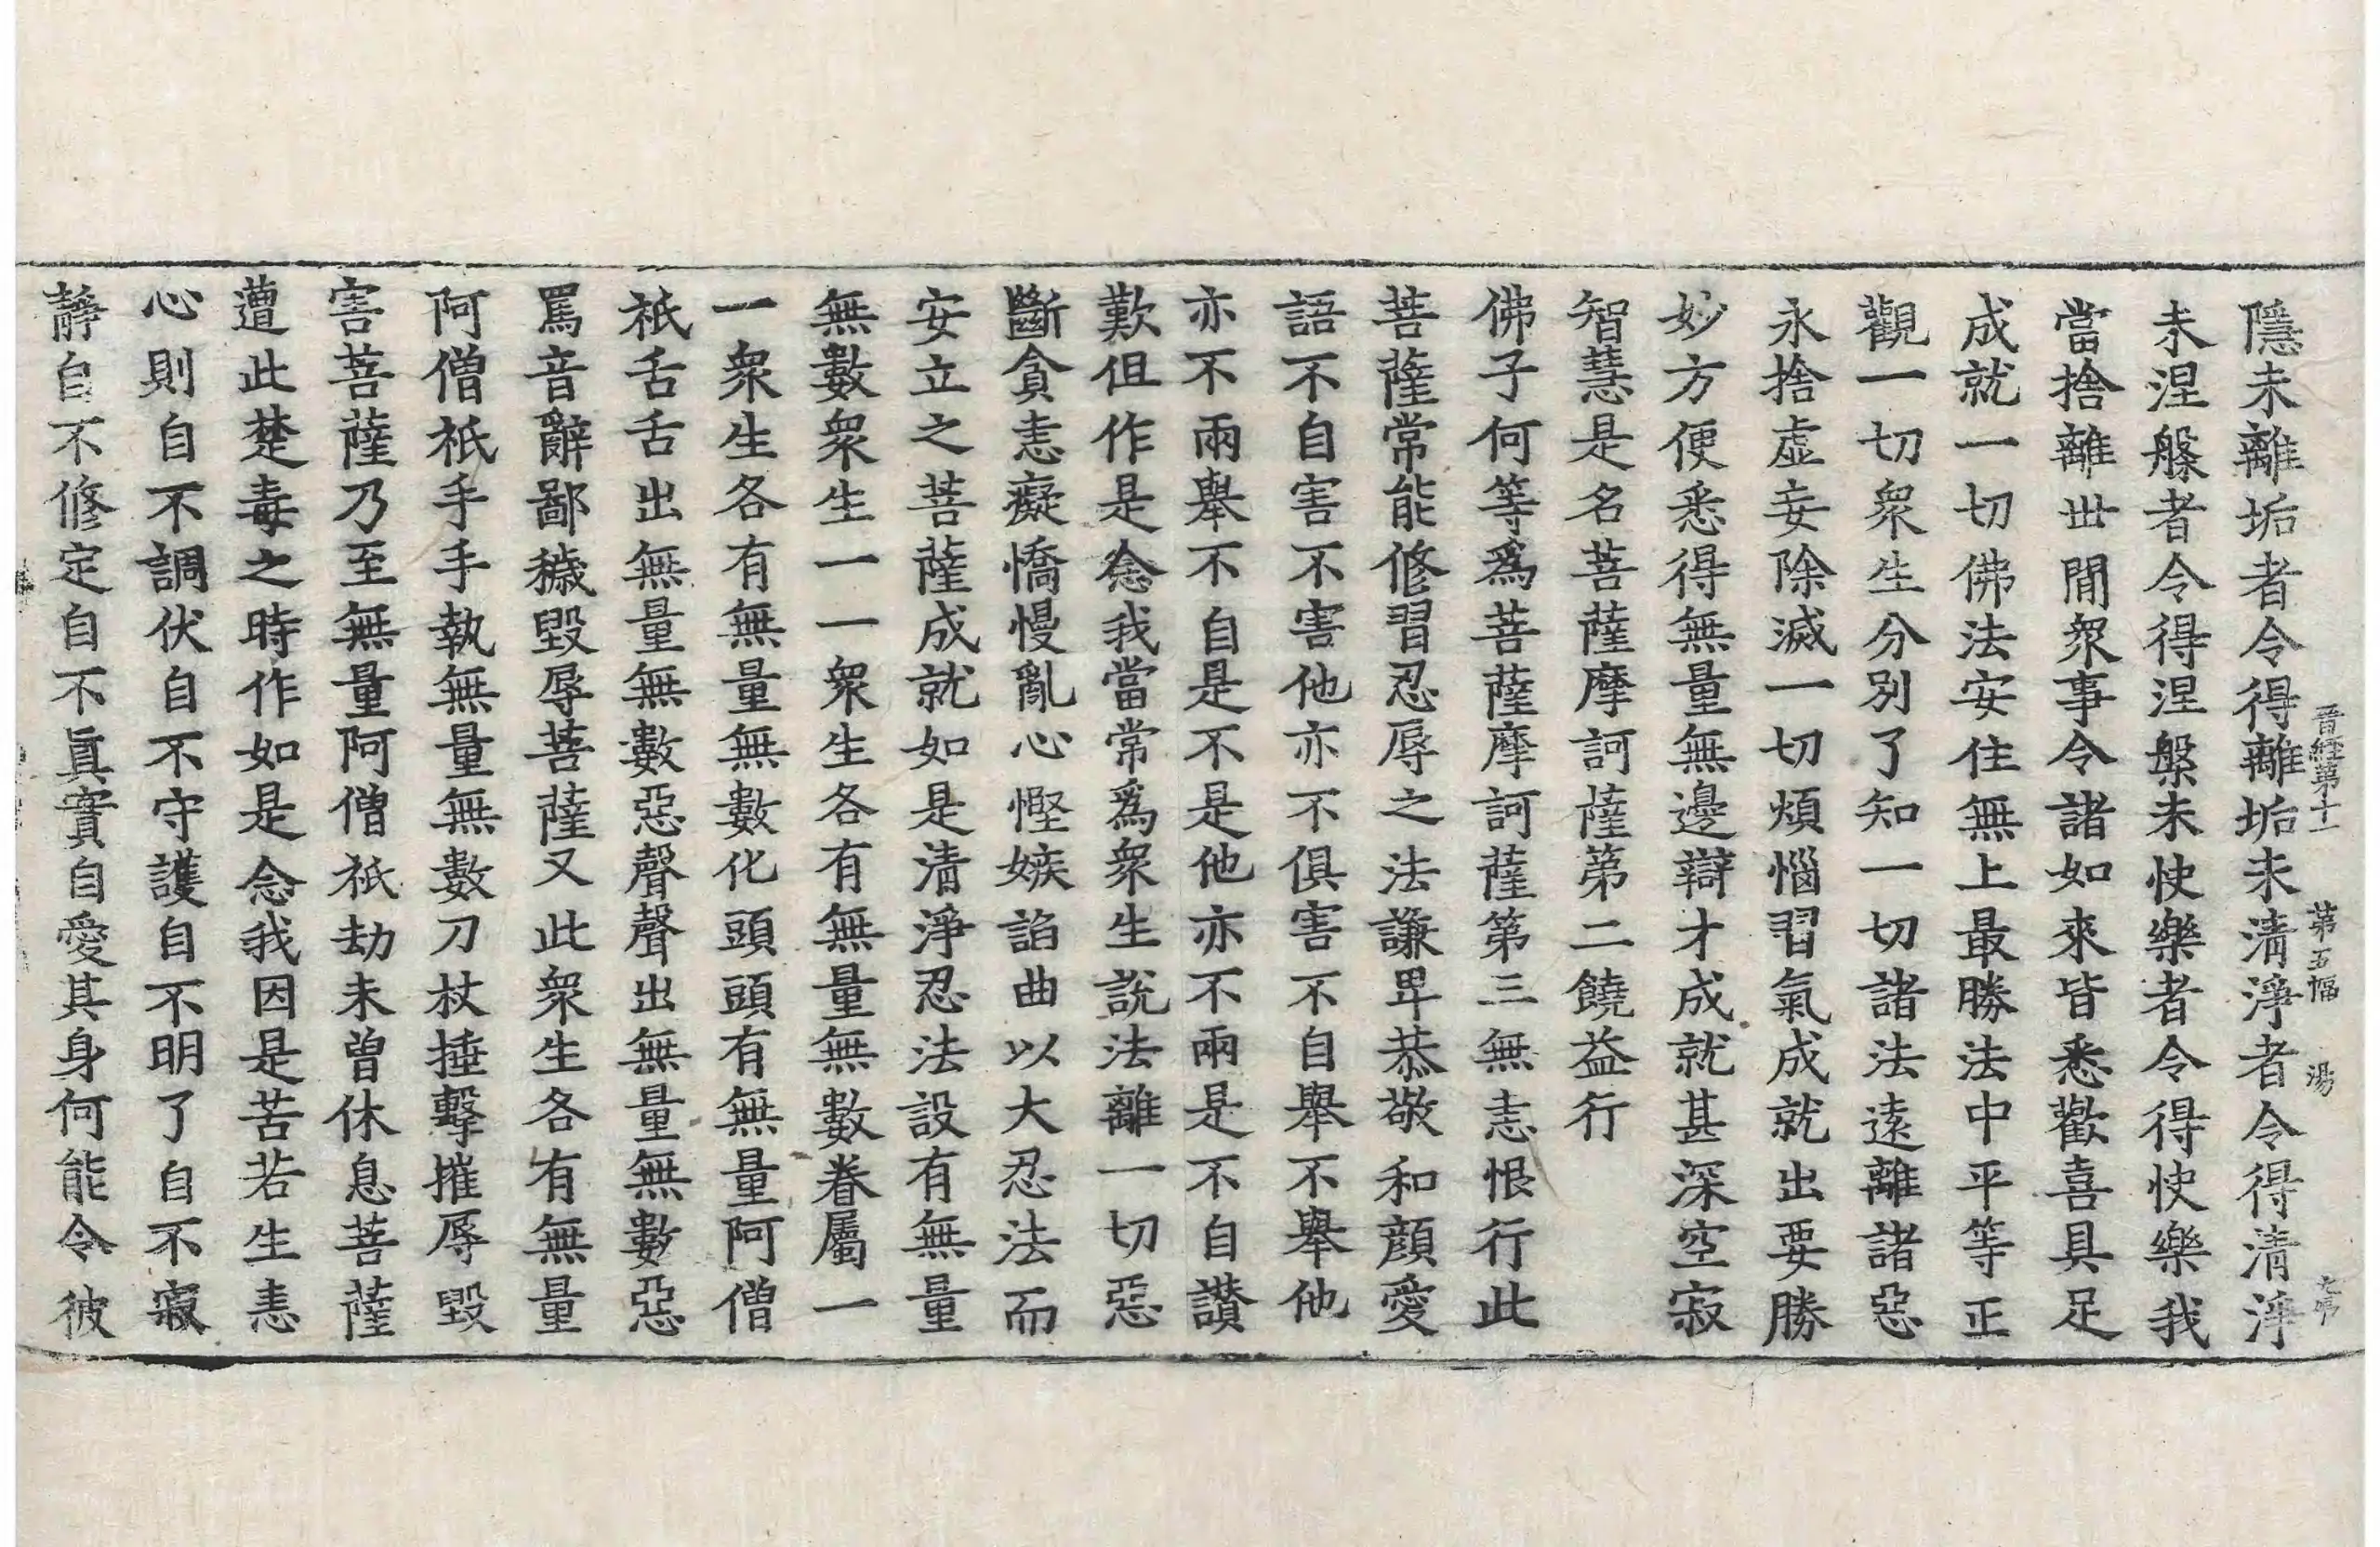 晉經第十一 第五幅 湯
隱未離垢者令得離垢未清淨者令得清淨
未涅槃者令得涅槃未快樂者令得快樂我
當捨離世間衆事令諸如來皆悉歡喜具足
成就一切佛法安住無上最勝法中平等正
觀一切衆生分別了知一切諸法遠離諸惡
永捨虛妄除滅一切煩惱習氣成就出要勝
妙方便悉得無量無邊辯才成就甚深空寂
智慧是名菩薩摩訶薩第二饒益行
佛子何等爲菩薩摩訶薩第三無恚恨行此
菩薩常能修習忍辱之法謙卑恭敬和顔愛
語不自害不害他亦不俱害不自舉不舉他
亦不兩舉不自是不是他亦不兩是不自讃
歎但作是念我當常爲衆生說法離一切惡
斷貪恚癡憍慢亂心慳嫉諂曲以大忍法而
安立之菩薩成就如是清淨忍法設有無量
無數衆生一一衆生各有無量無數眷屬一
一衆生各有無量無數化頭頭有無量阿僧
祇舌舌出無量無數惡聲聲出無量無數惡
罵音辭鄙穢毀辱菩薩又此衆生各有無量
阿僧祇手手執無量無數刀杖捶擊摧辱毀
害菩薩乃至無量阿僧祇劫未曽休息菩薩
遭此楚毒之時作如是念我因是苦若生恚
心則自不調伏自不守護自不明了自不寂
靜自不修定自不眞實自愛其身何能令彼